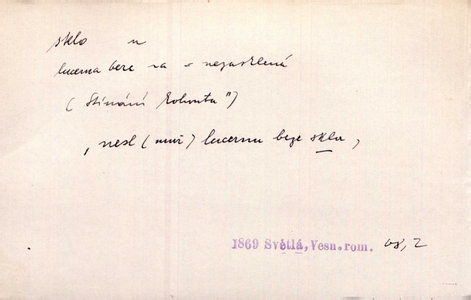 sklo n
lucerna beze skla = nezasklená
("Stínání Kohouta")
„nesl (muž) lucernu beze skla,
1869 Světlá, Vesn. rom. 68,2